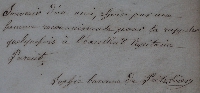 Souvenir d'un ami, offert par une
femme reconnaissante pour se rappeler
quelquefois à l'excellent Capitaine
Parent.
Sophie baronne de